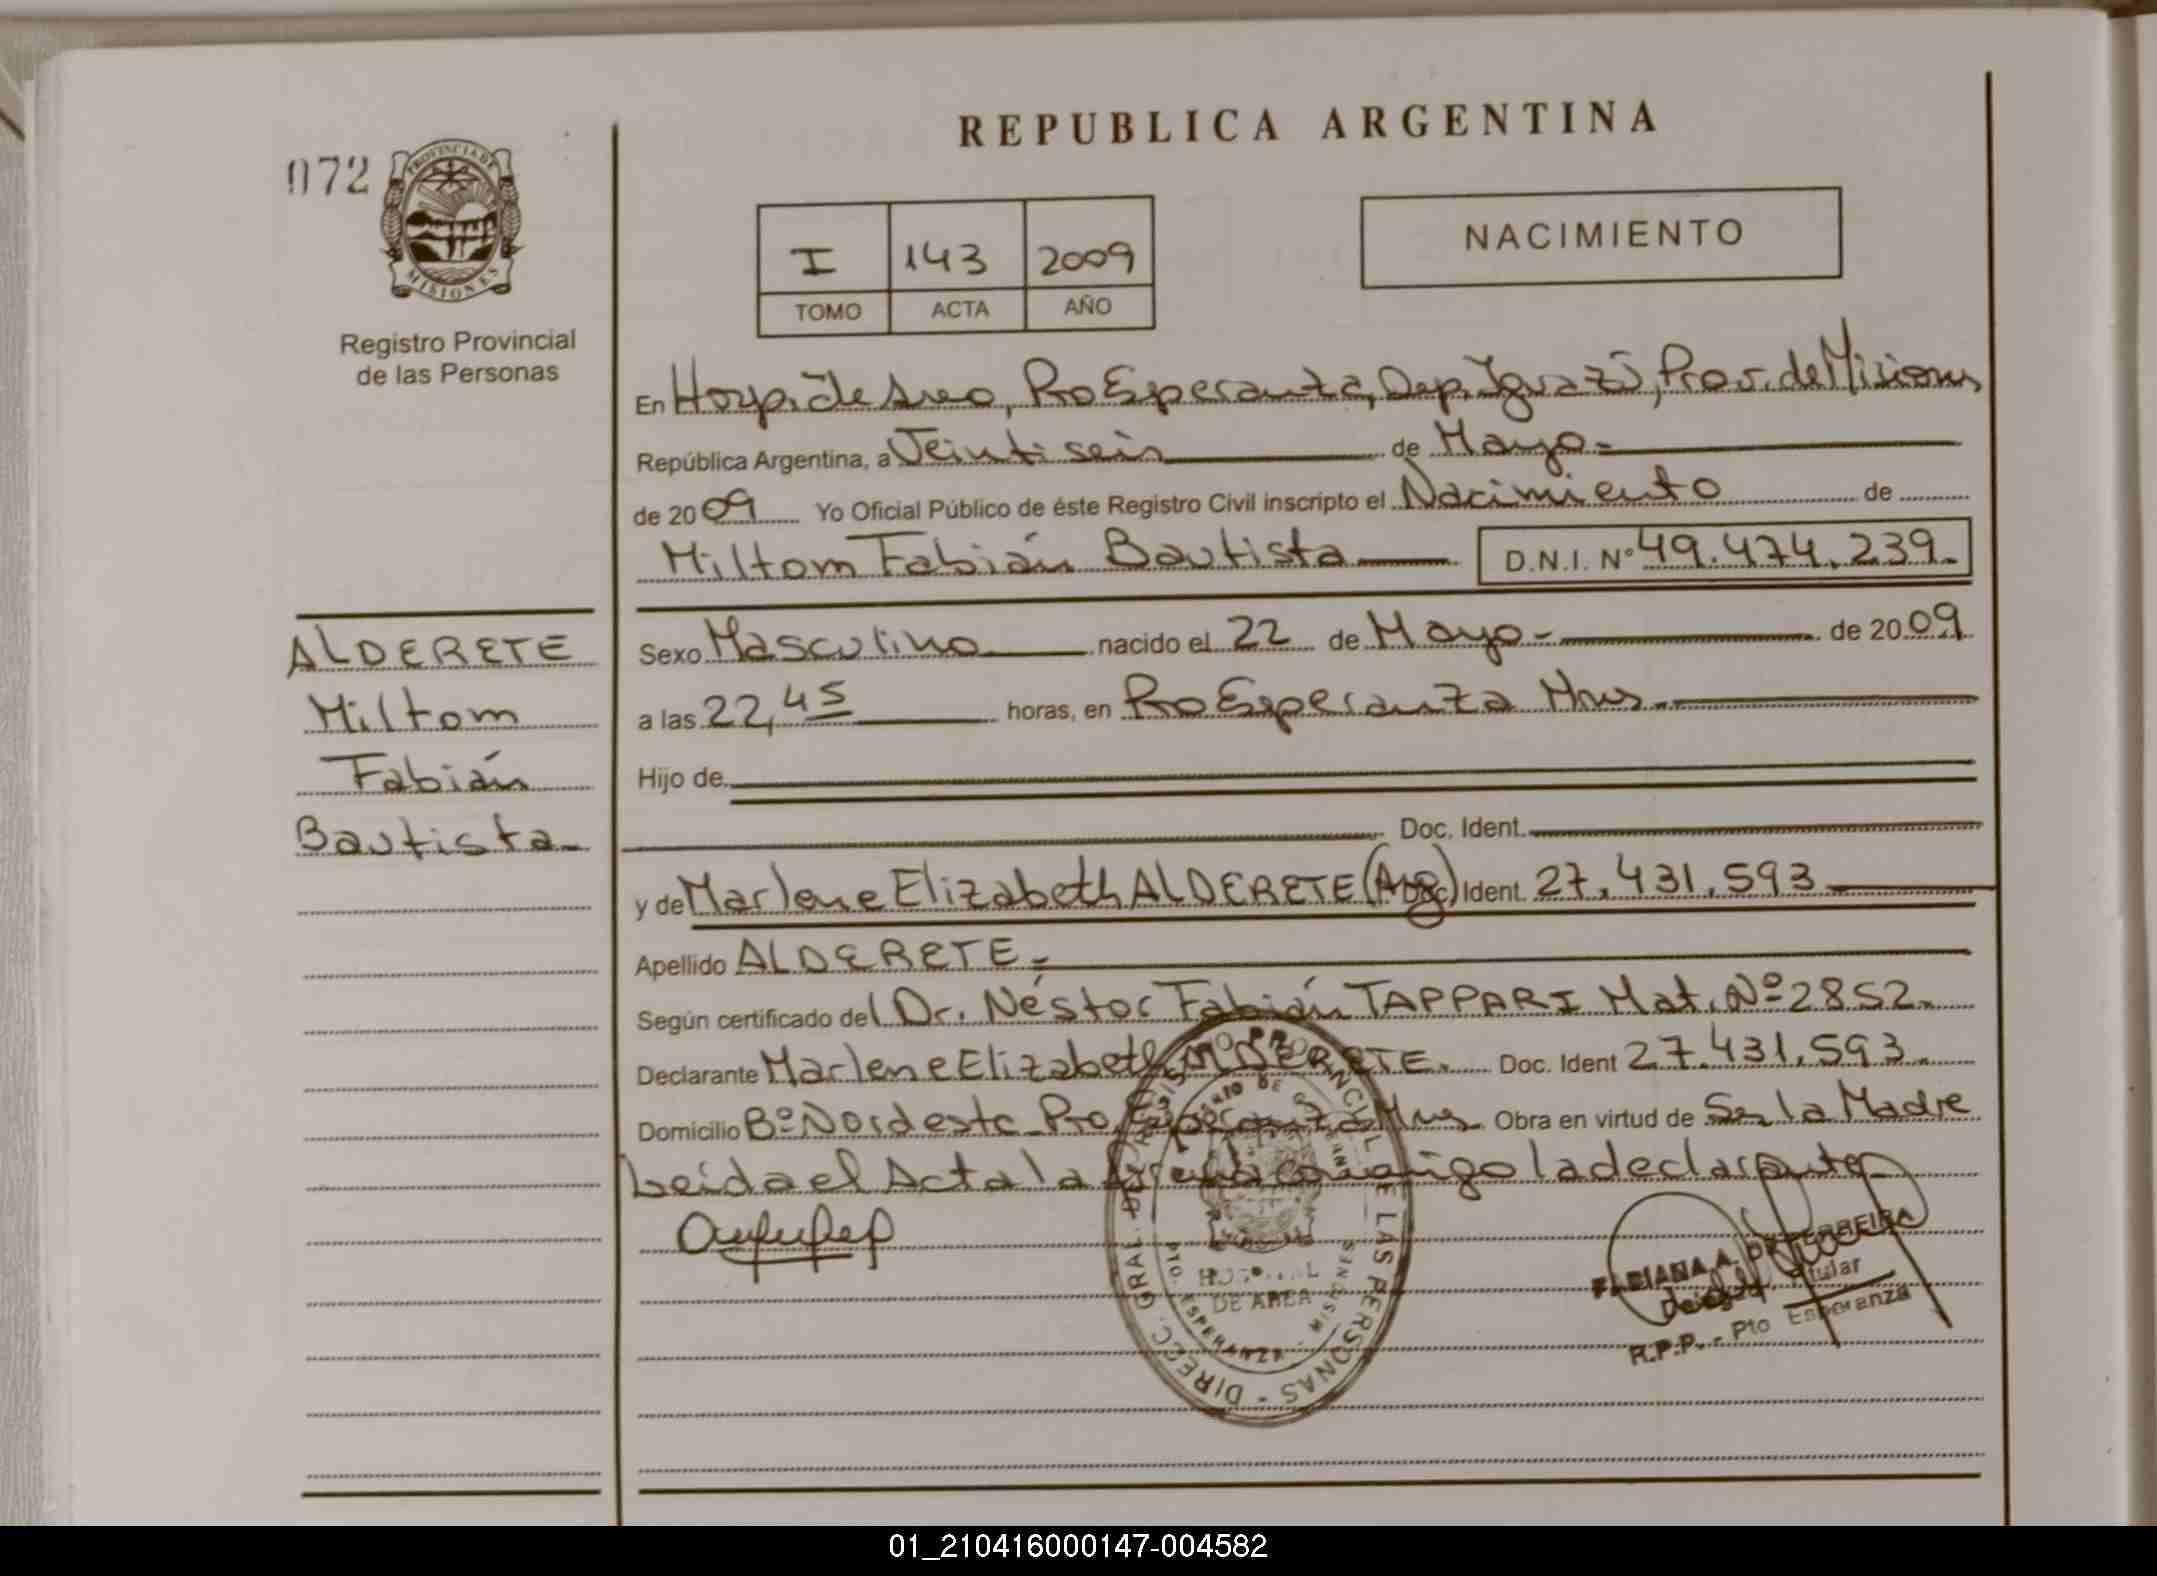 REPUBLICA ARGENTINA
072
PROVINCIA DE
MISIONES
Registro Provincial
de las Personas
I 143 2009
TOMO ACTA AÑO
NACIMIENTO
En Hosp. de Area, Pto Esperanza, Dep. Iguazú, Prov. de Misiones
República Argentina, a Veintiseis de Mayo.-
de 2009 Yo Oficial Público de éste Registro Civil inscripto el Nacimiento de
Miltom Fabián Bautista D.N.I. Nº 49.474.239.-
ALDERETE
Miltom
Fabián
Bautista.-
Sexo Masculino nacido el 22 de Mayo.- de 2009
a las 22,45 horas, en Pto Esperanza Mnes.-
Hijo de
Doc. Ident.
y de Marlene Elizabeth ALDERETE (Arg) Doc. Ident. 27.431.593
Apellido ALDERETE.-
Según certificado del Dr. Néstor Fabián TAPPARI Mat. Nº 2852.
Declarante Marlene Elizabeth ALDERETE. Doc. Ident 27.431.593.
Domicilio Bº Nordeste Pto. Esperanza Mnes Obra en virtud de Ser la Madre
Leida el Acta la firma conmigo la declarante
DIREC. GRAL. DEL REGISTRO PROVINCIAL DE LAS PERSONAS -
HOSPITAL
DE AREA
PTO. ESPERANZA - MISIONES
FABIANA A. FERREIRA
Titular
R.P.P. - Pto Esperanza
01_210416000147-004582